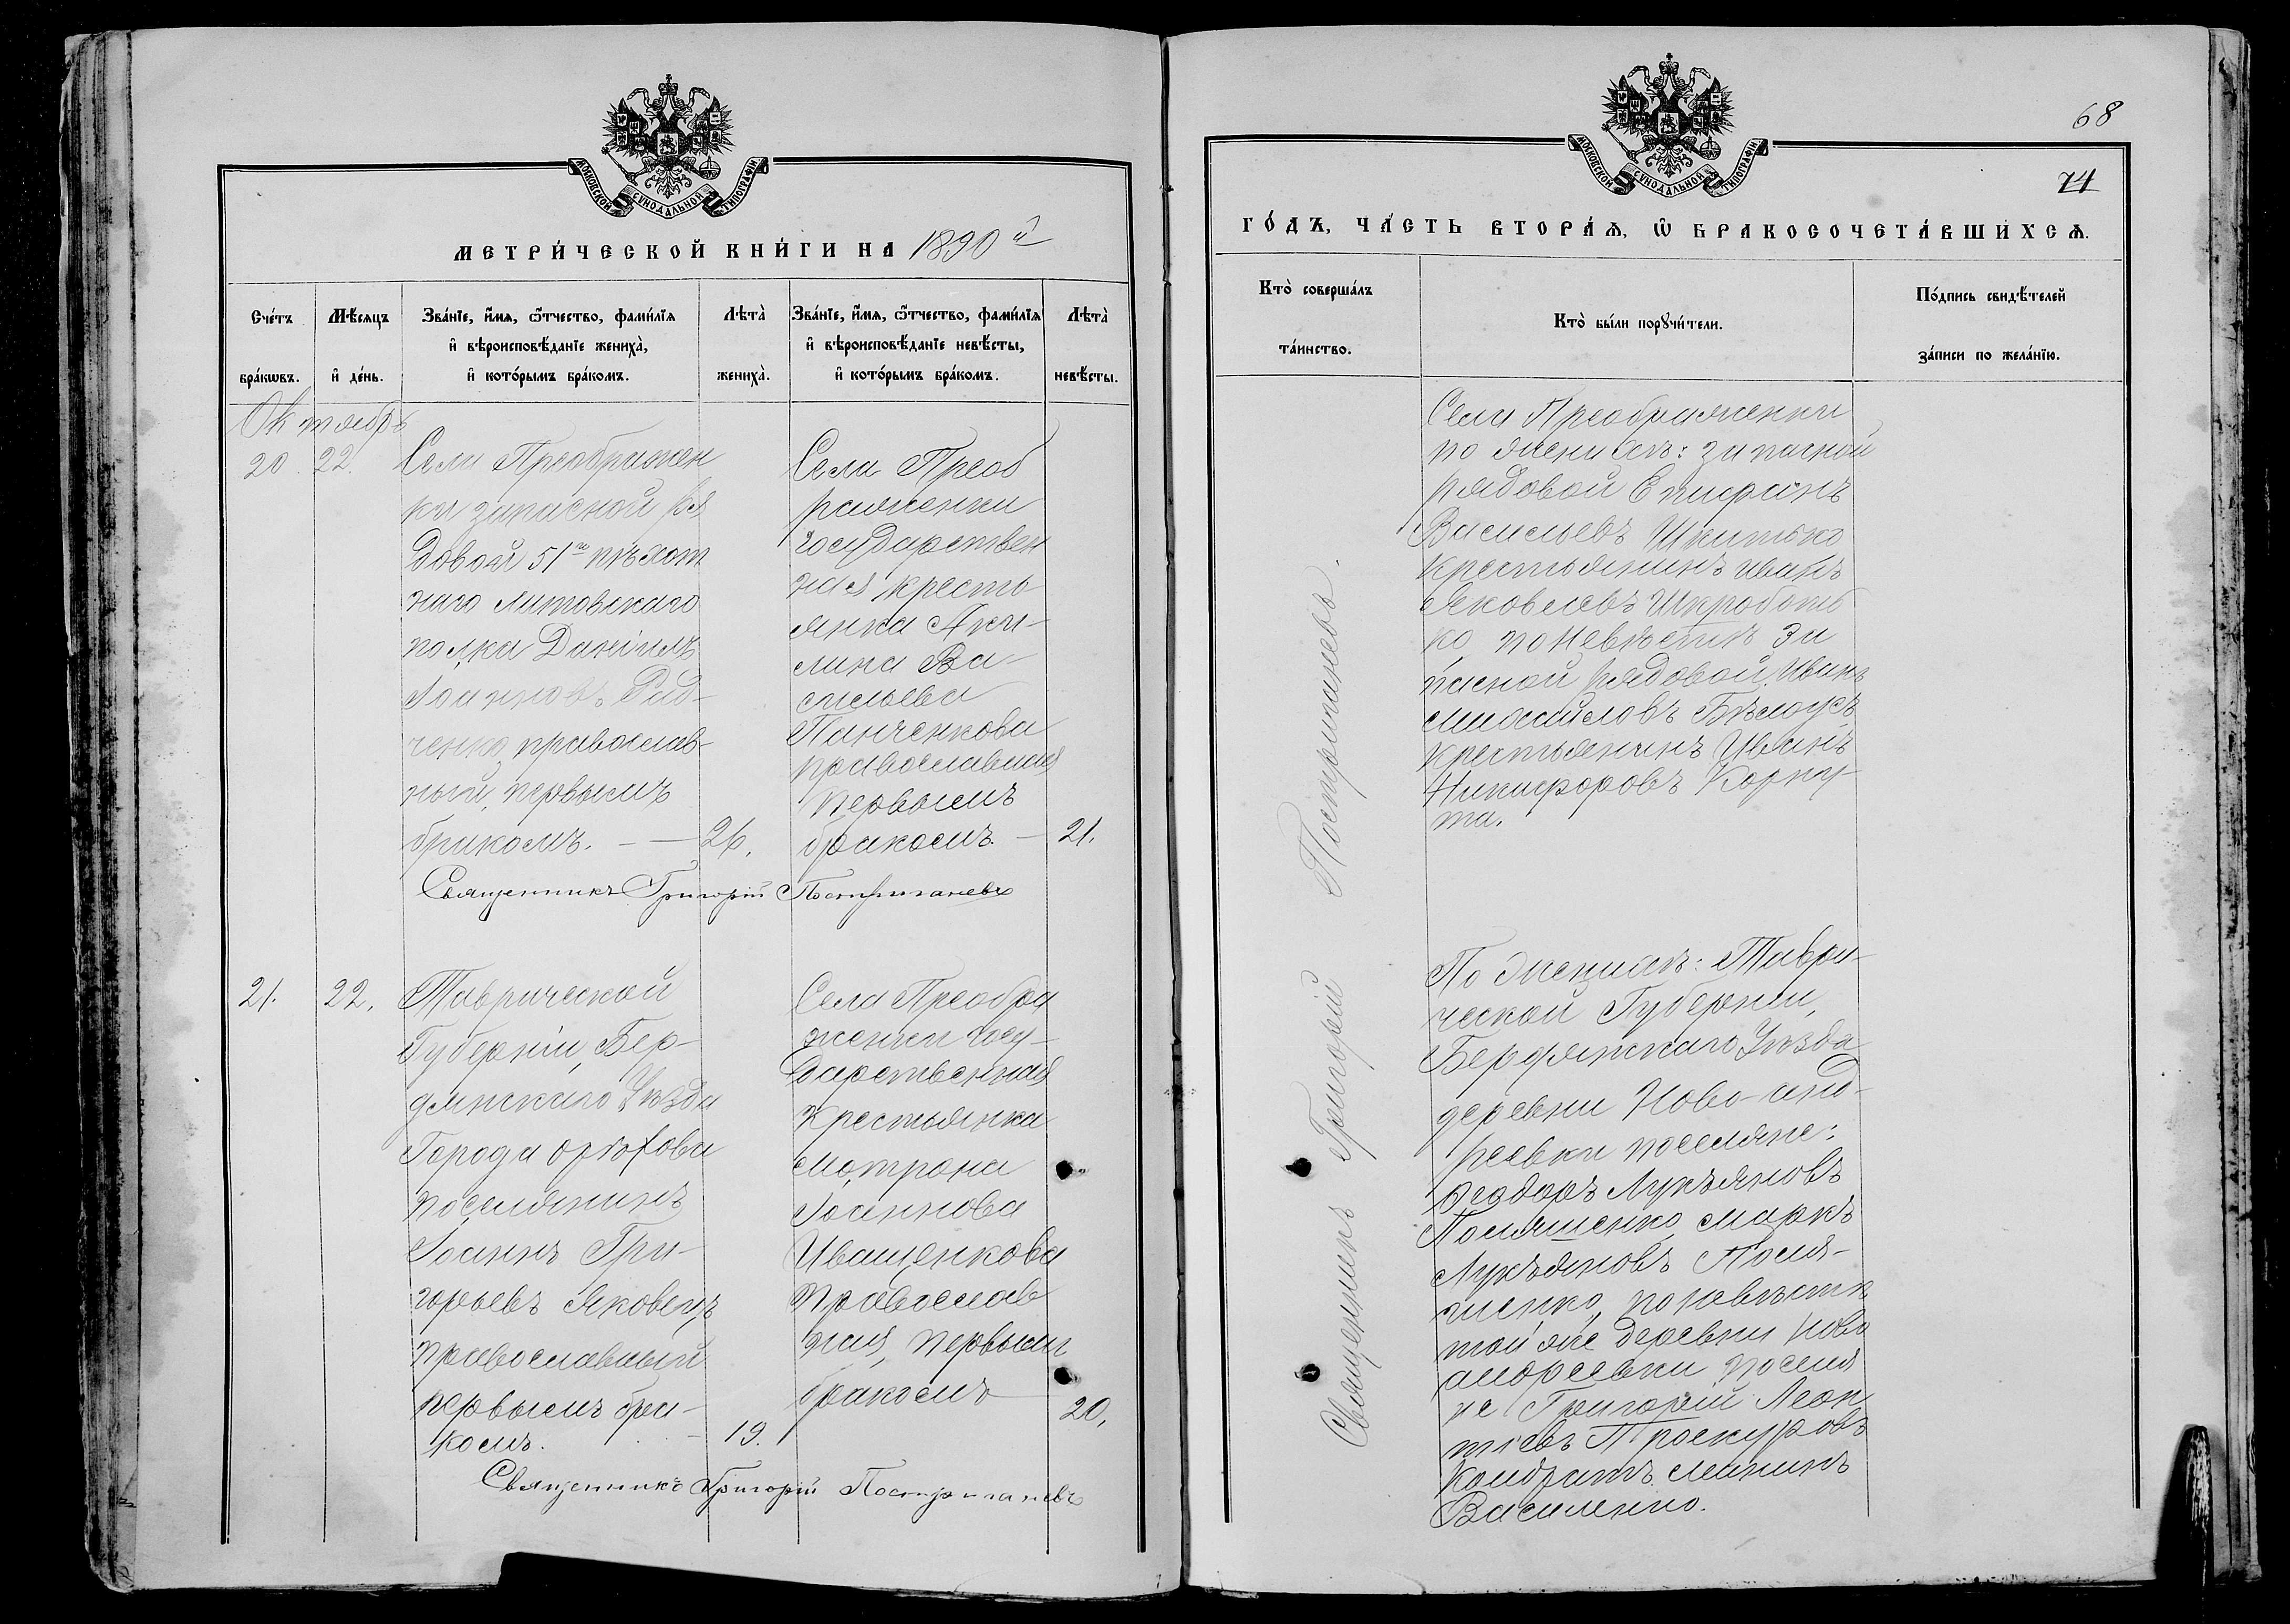 МОСКОВСКОЙ СѴНОДАЛЬНОЙ ТИПОГРАФІИ
МЕТРИ́ЧЕСКОЙ КНИ́ГИ НА 1890й
Сче́тъ бра́кωвъ.
Мѣ́сяцъ и҆ де́нь.
Зва́нїе, и҆́мя, ѻ҆́тчество, фами́лїя
и҆ вѣроисповѣ́данїе жениха̀,
и҆ кото́рымъ бра́комъ.
Лѣта̀ жениха̀.
Зва́нїе, и҆́мя, ѻ҆́тчество, фами́лїя
и҆ вѣроисповѣ́данїе невѣ́сты,
и҆ кото́рымъ бра́комъ.
Лѣта̀ невѣ́сты.
Октябрь
20 22.
Села Преображен
ки запасной ря
довой 51го пѣхот
наго Литовскаго
полка Даніилъ
Іоанновъ
ченко, православ-
ный, первымъ
бракомъ. — — 26.
Села Преоб
раженки
государствен
ная кресть
янка Аки-
лина Ва-
сильева
Панченкова
православная
первымъ
бракомъ. — 21.
Священникъ Григорій Постригачевъ
21. 22.
Таврической
Губерніи, Бер-
дянскаго Уѣзда
Города Орѣхова
поселянинъ
Іоаннъ Гри-
горьевъ Яковецъ
православный
первымъ бра-
комъ. — 19.
Села Преобра
женки госу-
дарственная
крестьянка
Матрона
Іоаннова
Иващенкова
Православ
ная, первымъ
бракомъ 20.
Священникъ Григорій Постригачевъ
68
74
МОСКОВСКОЙ СѴНОДАЛЬНОЙ ТИПОГРАФІИ
ГО́ДЪ, ЧА́СТЬ ВТОРА́Я, Ѡ҆ БРАКОСОЧЕТА́ВШИХСЯ.
Кто̀ соверша́лъ
та́инство.
Кто̀ бы́ли порꙋчи́тели.
По́дпись свидѣ́телей
за́писи по жела́нїю.
Священникъ Григорій Постригачевъ.
Села Преображенки
по женихѣ: запасной
рядовой Епифанъ
Васильевъ Шкитько
крестьянинъ Иванъ
Яковлевъ Шкроботь
ко, по невѣстѣ за
пасной рядовой Иванъ
Михайловъ Бѣлоусъ
крестьянинъ Иванъ
Никифоровъ Корну-
та.
По женихѣ: Таври-
ческой Губерніи,
Бердянскаго Уѣзда
деревни Ново-анд-
реевки поселяне:
Ѳеодоръ Лукьяновъ
Поляшенко, Маркъ
Лукьяновъ Поля-
шенко, по невѣстѣ
той же деревни Ново
андреевки поселя
не Григорій Леон
тіевъ Проскуровъ
Кондратъ Мининъ
Василенко.